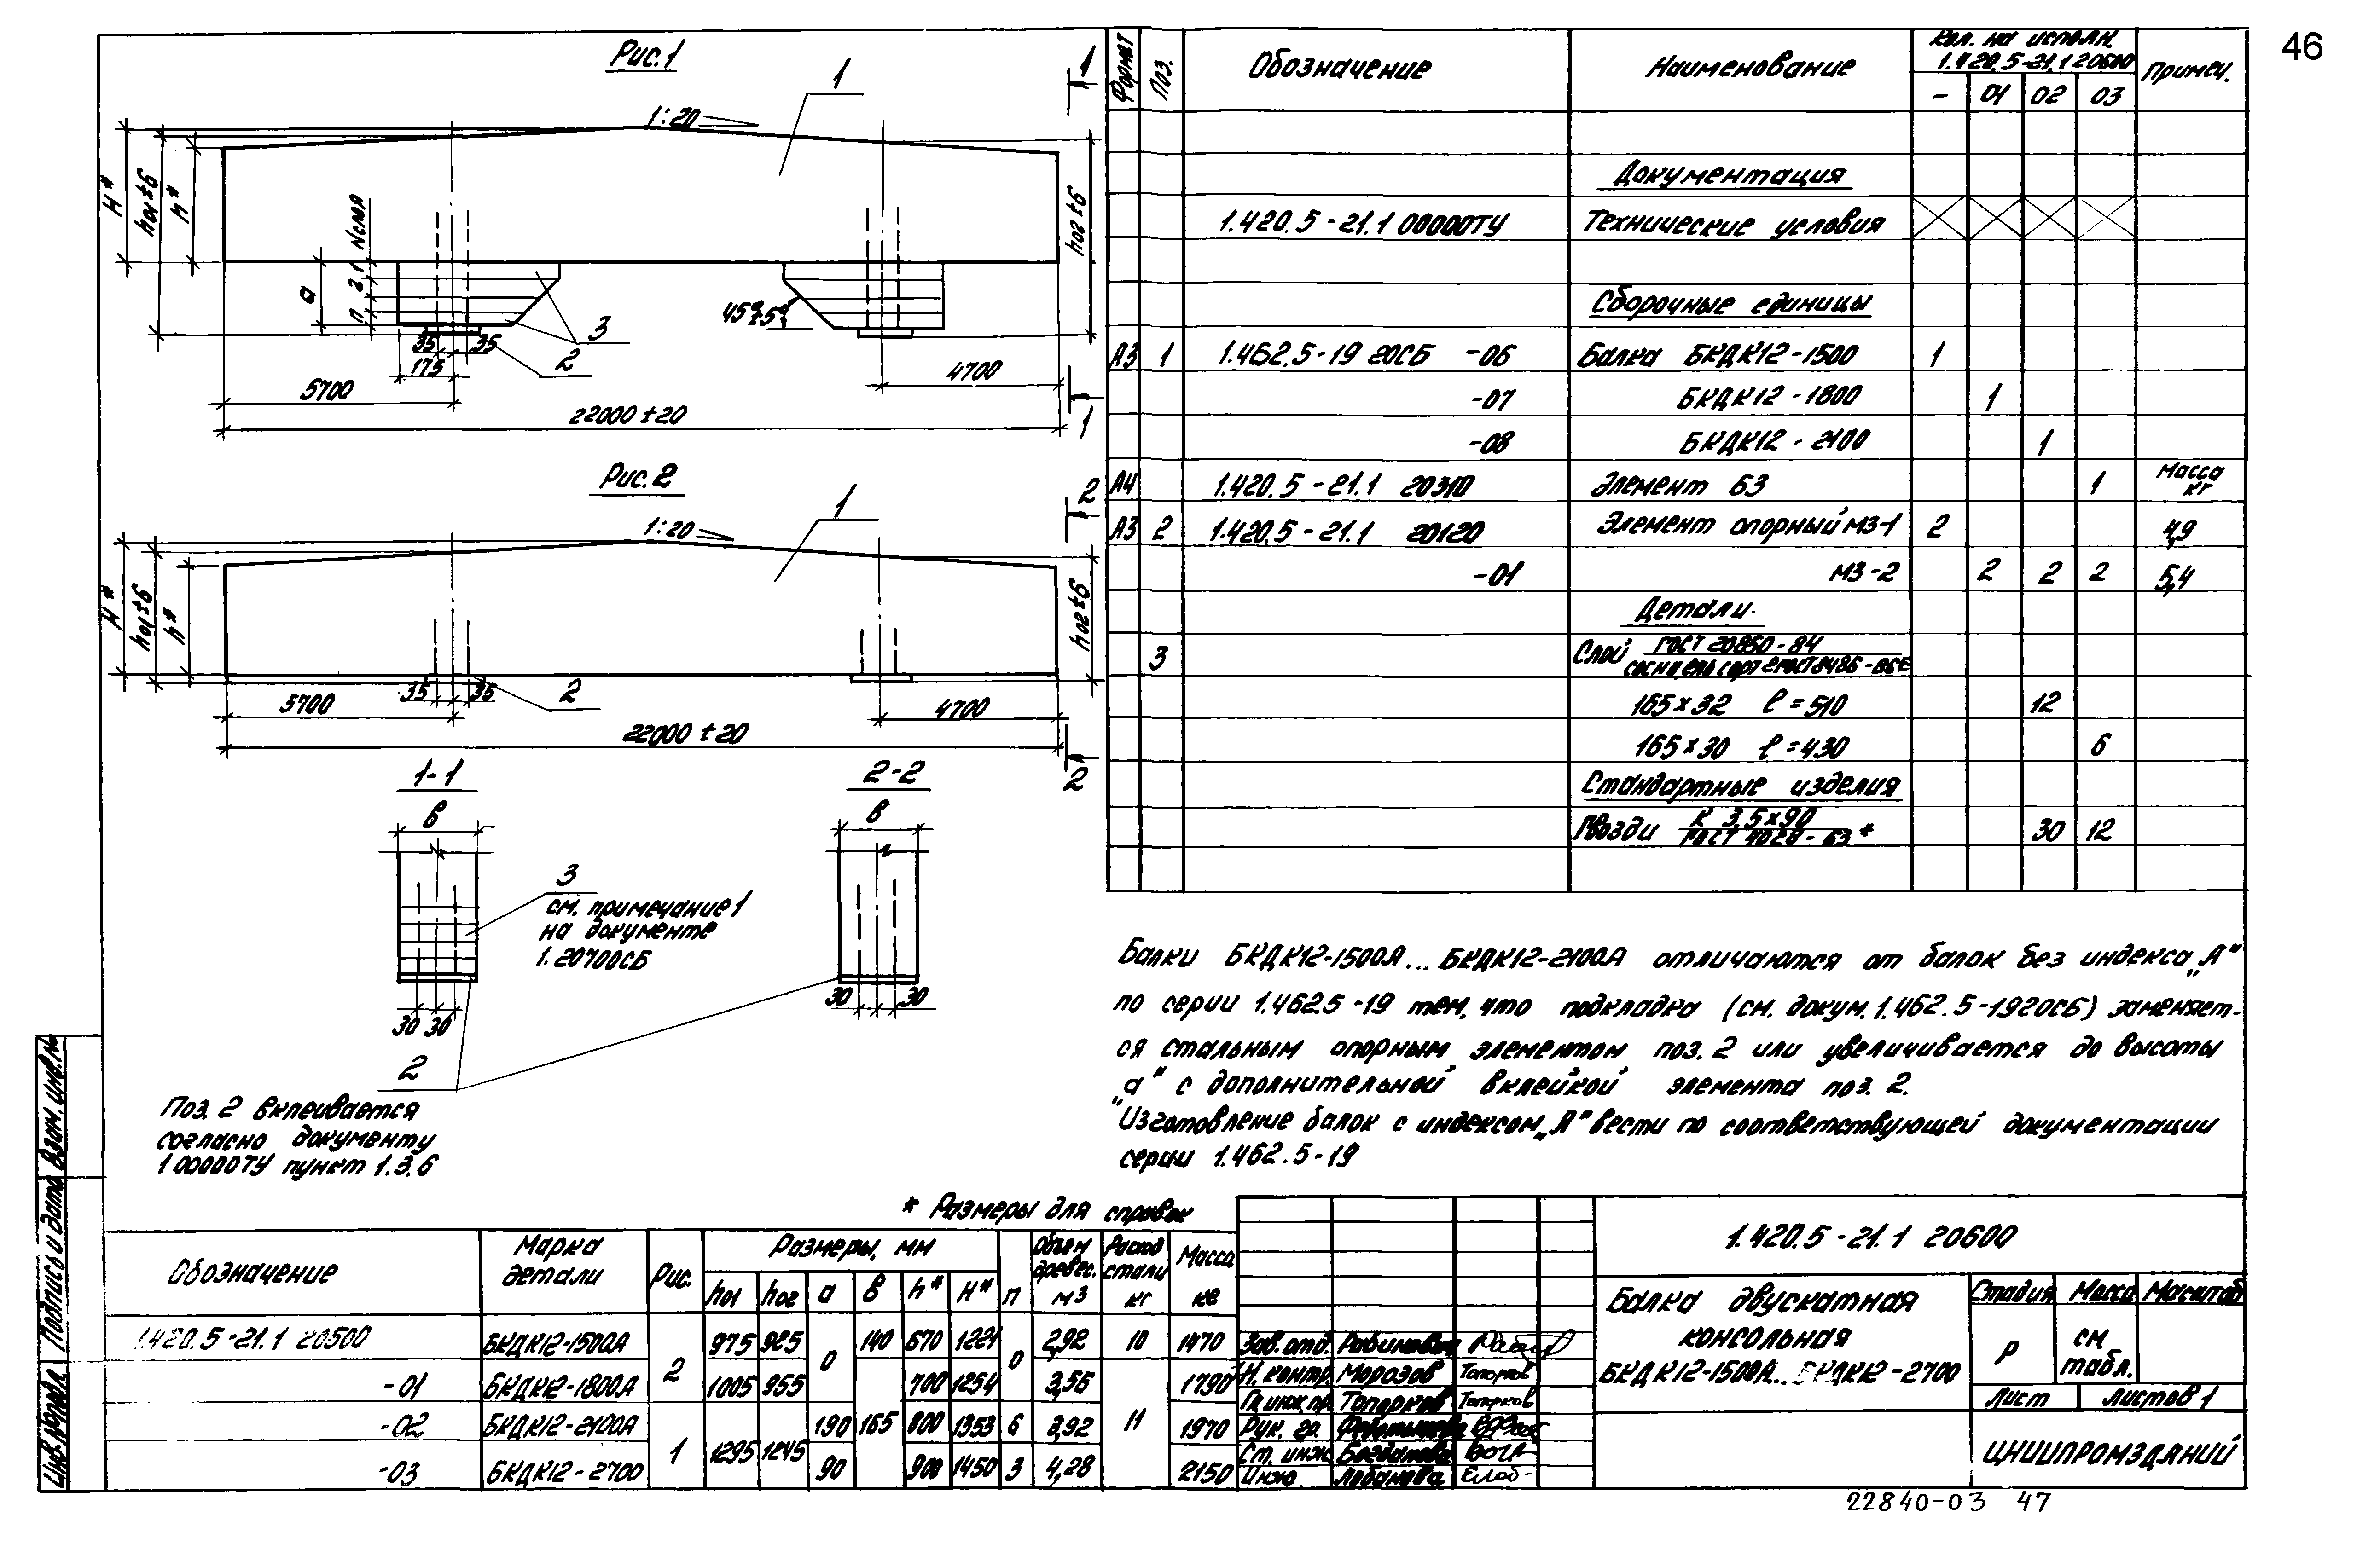 46
Рис.1
1
1
1:20
H*
h01±6
h*
N слоя
2 1
п
а
h02±6
45°±5°
3
35 35
2
175
5700
4700
22000±20
1
Рис.2
2
1
1:20
H*
h01±6
h*
h02±6
35 35
2
5700
4700
22000±20
2
1-1
2-2
в
в
3
см. примечание 1
на документе
1.20700СБ
30 30
30 30
2
Поз. 2 вклеивается
согласно документу
1 00000ТУ пункт 1.3.6
Формат Поз. Обозначение Наименование Кол. на исполн. 1.420.5-21.1 20600 Примеч.
- 01 02 03
Документация
1.420.5-21.1 00000ТУ Технические условия
Сборочные единицы
А3 1 1.462.5-19 20СБ -06 Балка БКДК12-1500 1
-07 БКДК12-1800 1
-08 БКДК12-2100 1
А4 1.420.5-21.1 20310 Элемент Б3 1 Масса кг
А3 2 1.420.5-21.1 20120 Элемент опорный М3-1 2 4,9
-01 М3-2 2 2 2 5,4
Детали
3 Слой ГОСТ 20850-84
сосна, ель сорт 2 ГОСТ 8486-86Е
165×32 ℓ=510 12
165×30 ℓ=430 6
Стандартные изделия
Гвозди К 3,5×90 30 12
ГОСТ 4028-63*
Балки БКДК12-1500А...БКДК12-2100А отличаются от балок без индекса „А"
по серии 1.462.5-19 тем, что подкладка (см. докум. 1.462.5-19 20СБ) заменяет-
ся стальным опорным элементом поз. 2 или увеличивается до высоты
„а" с дополнительной вклейкой элемента поз. 2.
Изготовление балок с индексом „А" вести по соответствующей документации
серии 1.462.5-19
* Размеры для справок
Обозначение Марка детали Рис. Размеры, мм п Объем древес. м3 Расход стали кг Масса кг
h01 h02 а в h* H*
1.420.5-21.1 20500 БКДК12-1500А 2 975 925 0 140 670 1221 0 2,92 10 1470
-01 БКДК12-1800А 1005 955 165 700 1254 3,56 11 1790
-02 БКДК12-2100А 1 1295 1245 190 800 1353 6 3,92 1970
-03 БКДК12-2700 90 900 1450 3 4,28 2150
Зав. отд. Рабинович
Н. контр. Морозов Топорков
Гл. инж. пр. Топорков Топорков
Рук. гр.
Ст. инж. Богданова
Инж. Лобанова
1.420.5-21.1 20600
Балка двускатная
консольная
БКДК12-1500А...БКДК12-2700
Стадия Масса Масштаб
Р см. табл.
Лист Листов 1
ЦНИИПРОМЗДАНИЙ
Инв. № подл. Подпись и дата Взам. инв. №
22840-03 47